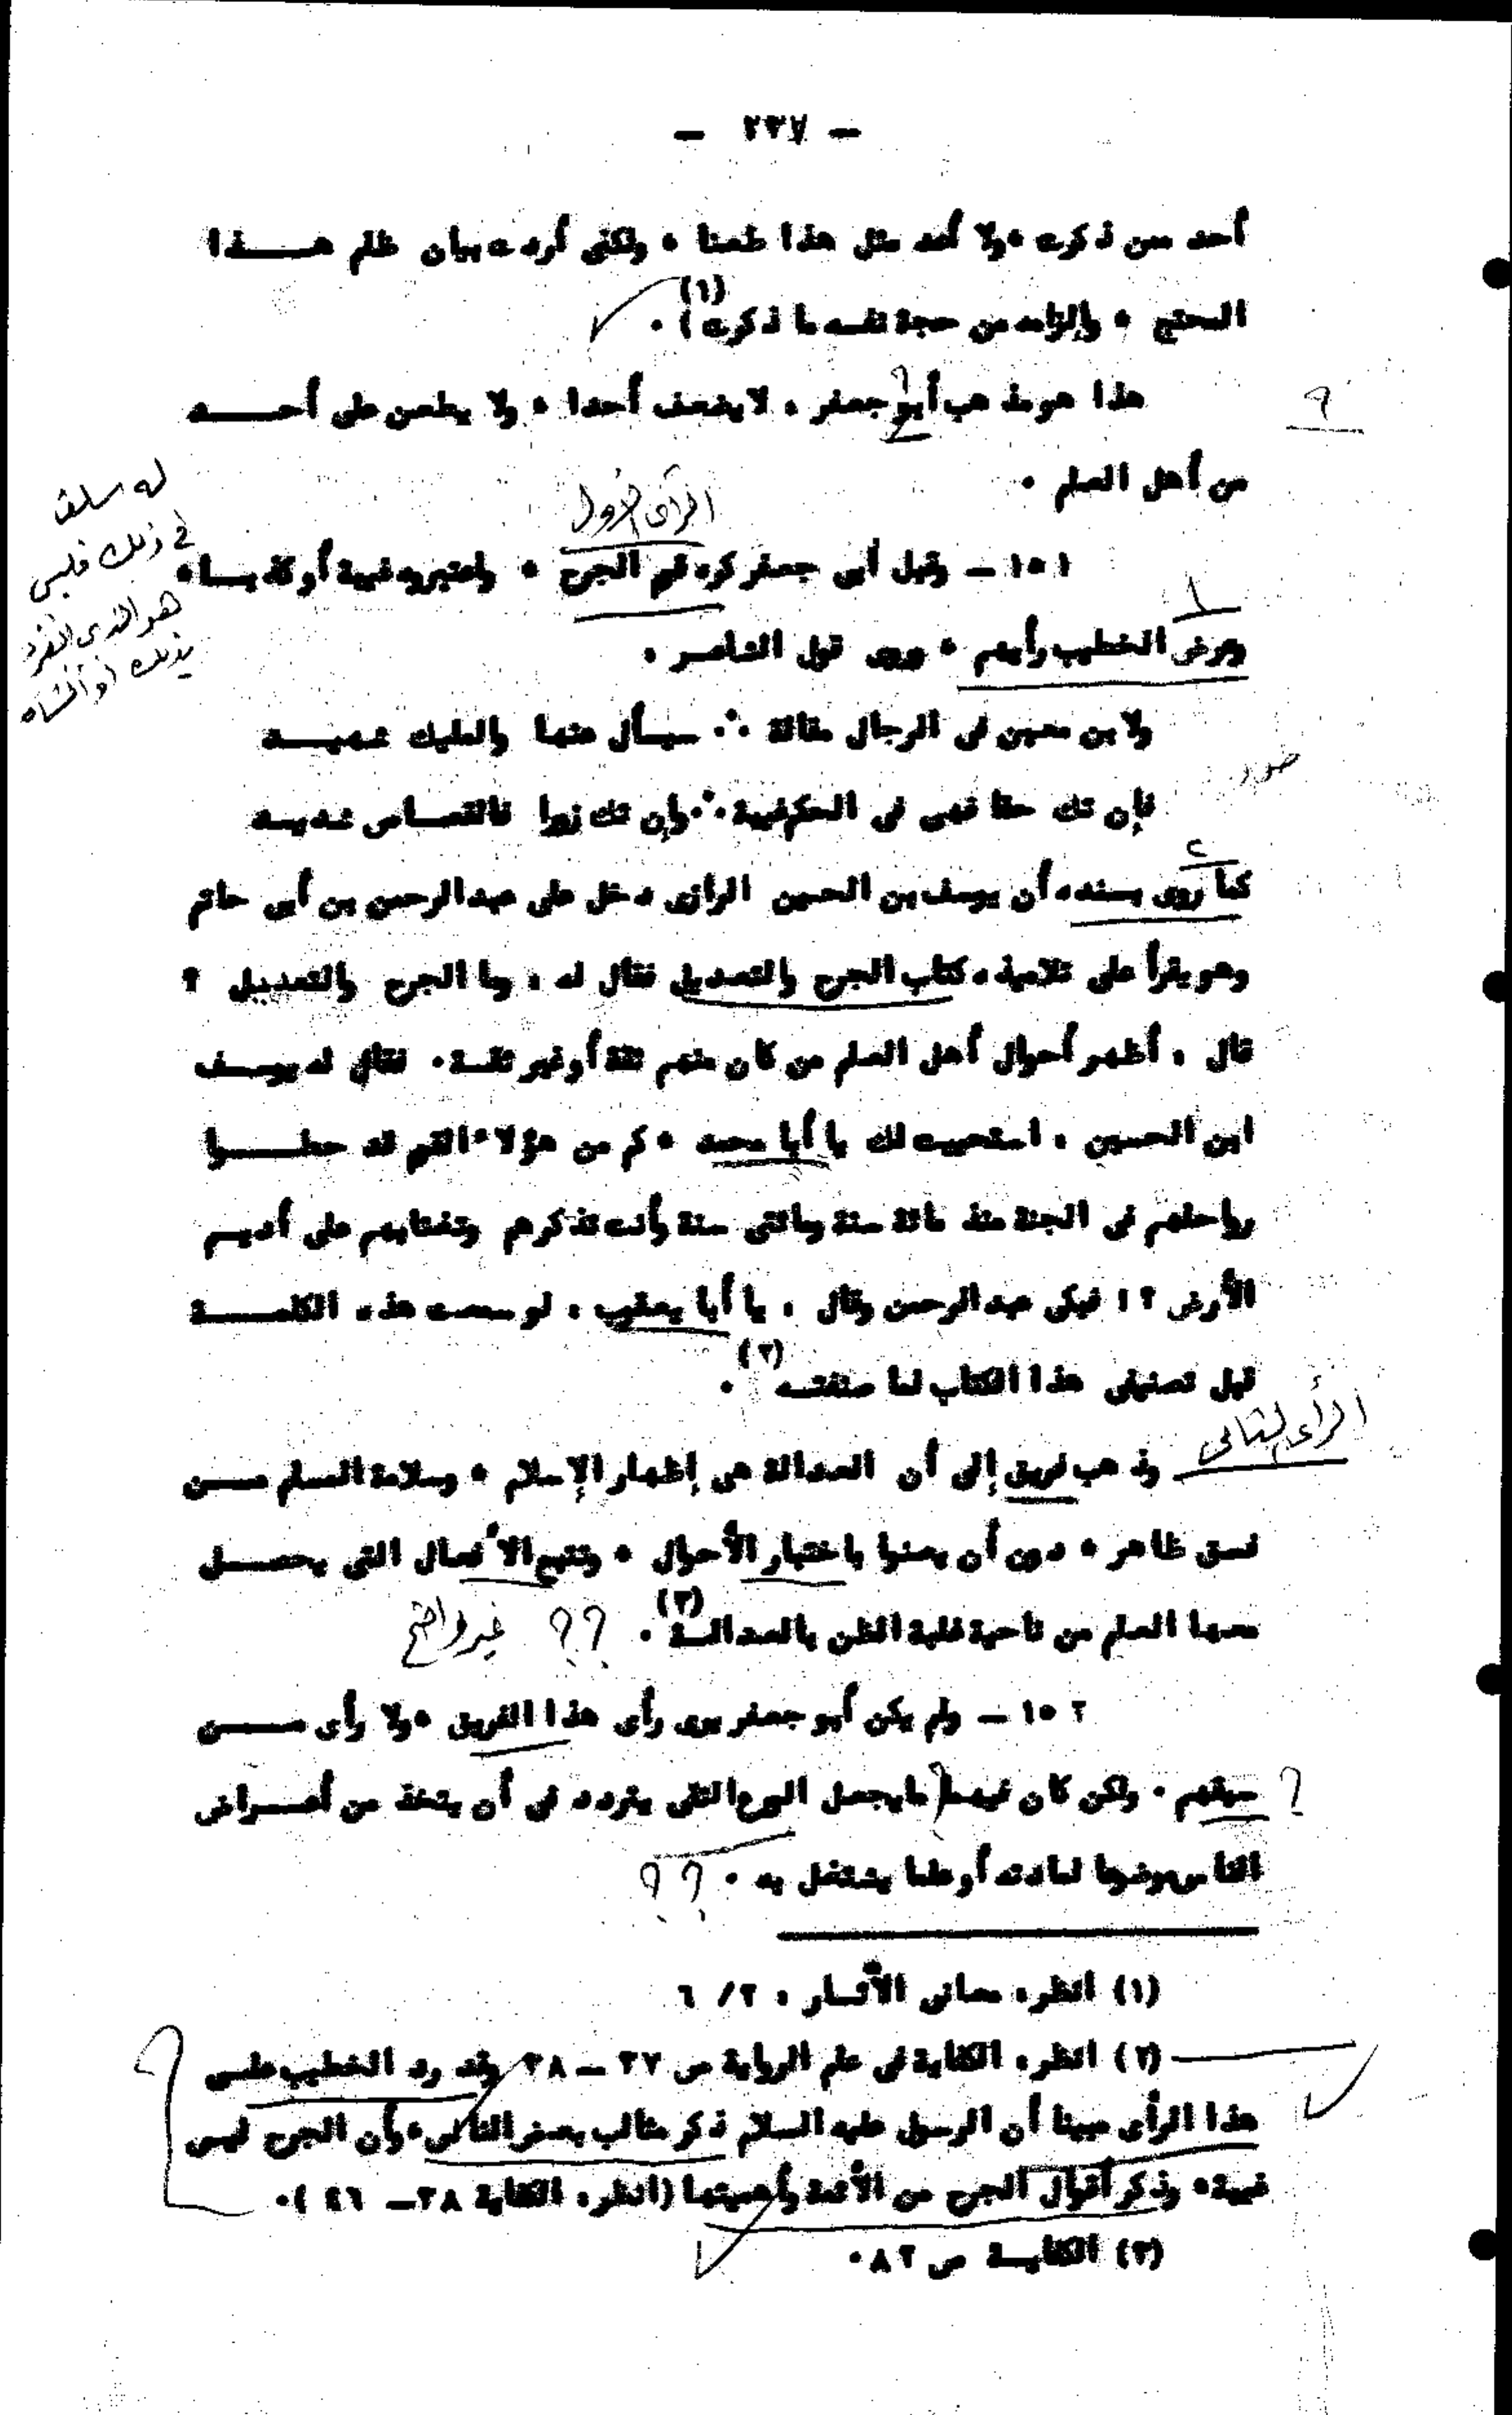 — ٢٣٧ —
أحد ممن ذكرت ، ولا أعد مثل هذا طعنا ، ولكنى أردت بيان ظلم هـــذا
المحتج ، وإلزامه من حجة نفسه ما ذكرت ) (١) .
هذا هو مذهب أبو جعفر ، لا يضعف أحدا ، ولا يطعن على أحـــد
؟
من أهل العلم .
الرأى الأول
له سلف
فى ذلك فليس
هو الذى انفرد
بذلك أو أنشأه
١٥١ ــ وقبل أبى جعفر كره قوم الجرح ، واعتبروه غيبة أو كذبـــا ،
١
وعرض الخطيب رأيهم ، وروى قول الشاعـر .
ولابن معين فى الرجال مقالة ∴ سيسأل عنها والمليك شهيـــد
فإن تك حقا فهى فى الحكم غيبة ∴ وإن تك زورا فالقصاص شديـــد
٢
كما روى بسنده أن يوسف بن الحسين الرازى دخل على عبد الرحمن بن أبى حاتم
وهو يقرأ على تلاميذه كتاب الجرح والتعديل فقال له ، وما الجرح والتعديل ؟
قال ، أظهر أحوال أهل العلم من كان منهم ثقة أو غير ثقـة . فقال له يوســف
ابن الحسين ، استحييت لك يا أبا محمد ، كم من هؤلاء القوم قد حطـــوا
رواحلهم فى الجنة منذ مائة سنة ومائتى سنة وأنت تذكرهم وتغتابهم على أديـم
الأرض ؟ ! فبكى عبد الرحمن وقال ، يا أبا يعقوب ، لو سمعت هذه الكلمـــة
قبل تصنيفى هذا الكتاب لما صنفتـه (٢) .
الرأى الثانى
وذهب فريق إلى أن العدالة هى إظهار الإسلام ، وسلامة المسلم مـــن
فسق ظاهر ، دون أن يعنوا باختبار الأحوال ، وتتبع الأفعال التى يحصـــل
معها العلم من ناحية غلبة الظن بالعدالــة (٣) . ؟ ؟ غير واضح
١٥٢ ــ ولم يكن أبو جعفر يرى رأى هذا الفريق ، ولا رأى مـــن
سبقهم . ولكن كان فيهما ما يجعل الورع التقى يتردد فى أن يتخذ من أعـــراض
؟
الناس موضوعا لمادته أو علما يشتغل به . ؟ ؟
(١) انظر، معانى الآثــار ، ٢/ ٦
(٢) انظر، الكفاية فى علم الرواية ص ٣٧ ــ ٣٨ وقد رد الخطيب علــى
هذا الرأى مبينا أن الرسول عليه السلام ذكر مثالب بعض الناس، وأن الجرح ليس
غيبة، وذكر أقوال الجرح من الأئمة وأهميتها (انظر، الكفاية ٣٨ــ ٤٦ ).
(٣) الكفايــة ص ٨٢.